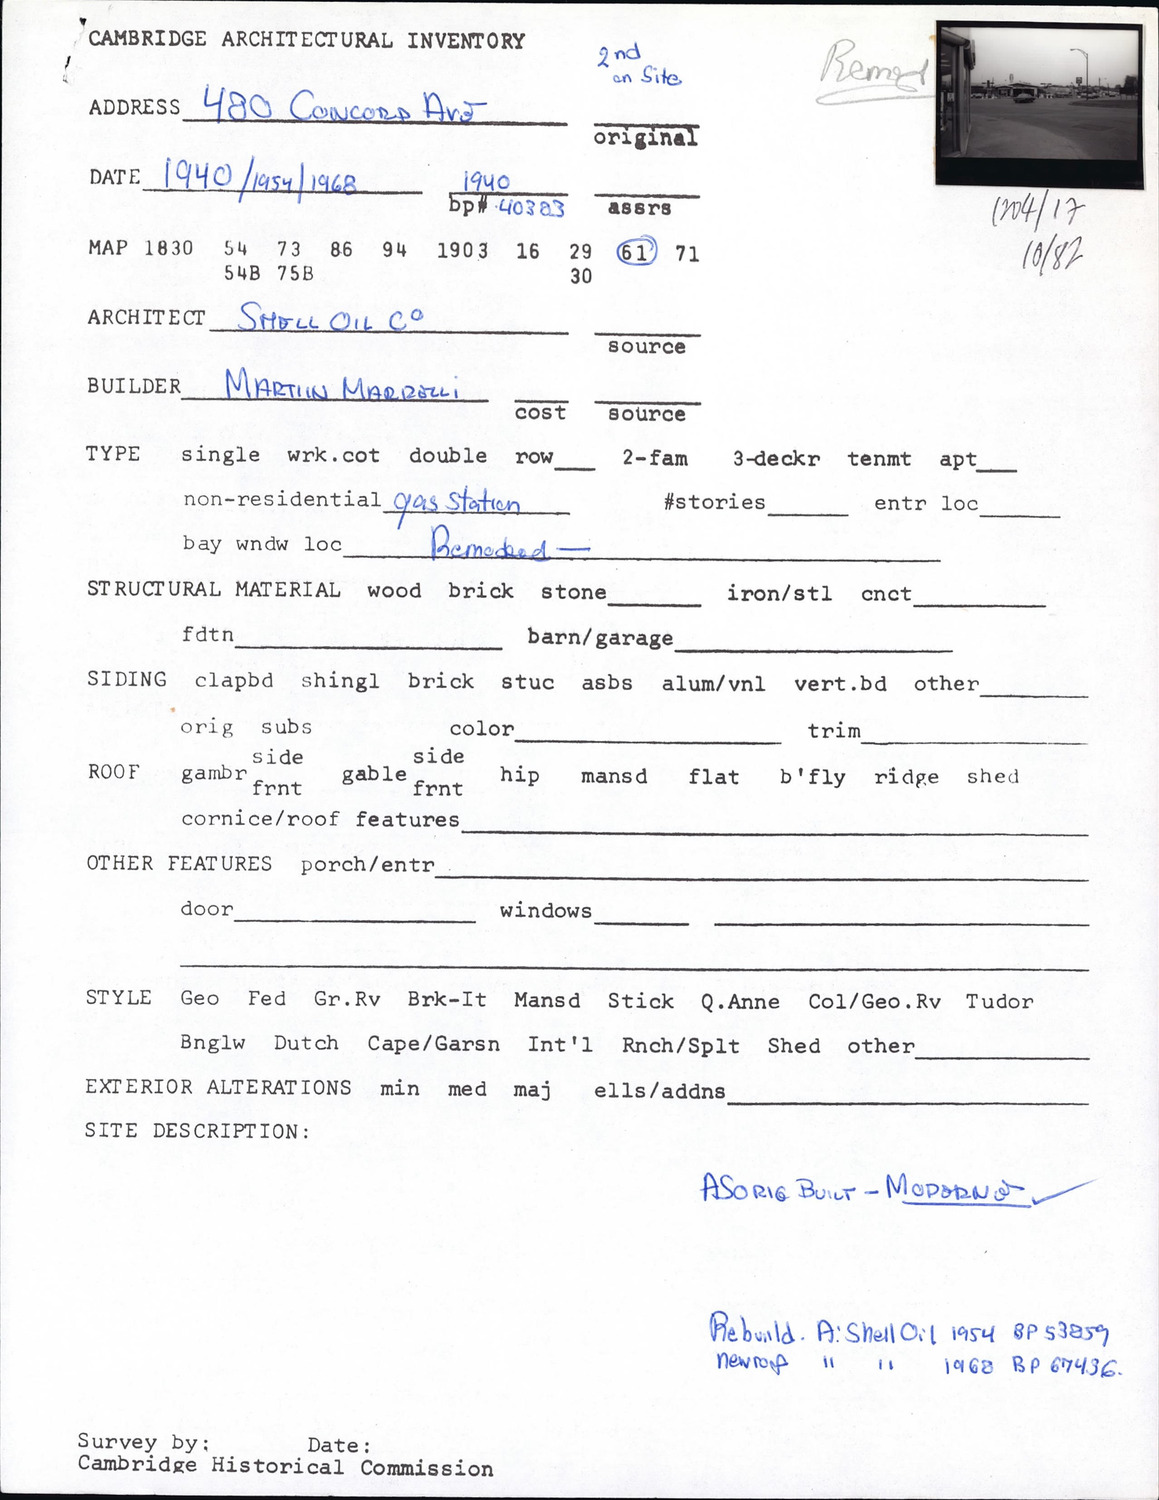 CAMBRIDGE ARCHITECTURAL INVENTORY
2nd
on Site
Remod
ADDRESS 480 CONCORD AVE
original
DATE 1940/1954/1968 1940
bp# 40383 assrs
1204/17
10/82
MAP 1830 54 73 86 94 1903 16 29 61 71
54B 75B 30
ARCHITECT SHELL OIL CO
source
BUILDER MARTIIN MARRELLI
cost source
TYPE single wrk.cot double row 2-fam 3-deckr tenmt apt
non-residential gas station #stories entr loc
bay wndw loc Remodeed —
STRUCTURAL MATERIAL wood brick stone iron/stl cnct
fdtn barn/garage
SIDING clapbd shingl brick stuc asbs alum/vnl vert.bd other
orig subs color trim
side side
ROOF gambr gable hip mansd flat b'fly ridge shed
frnt frnt
cornice/roof features
OTHER FEATURES porch/entr
door windows
STYLE Geo Fed Gr.Rv Brk-It Mansd Stick Q.Anne Col/Geo.Rv Tudor
Bnglw Dutch Cape/Garsn Int'l Rnch/Splt Shed other
EXTERIOR ALTERATIONS min med maj ells/addns
SITE DESCRIPTION:
AS ORIG BUILT – MODERNE ✓
Rebuild. A: Shell Oil 1954 BP 53859
new roof " " 1968 BP 67436.
Survey by: Date:
Cambridge Historical Commission